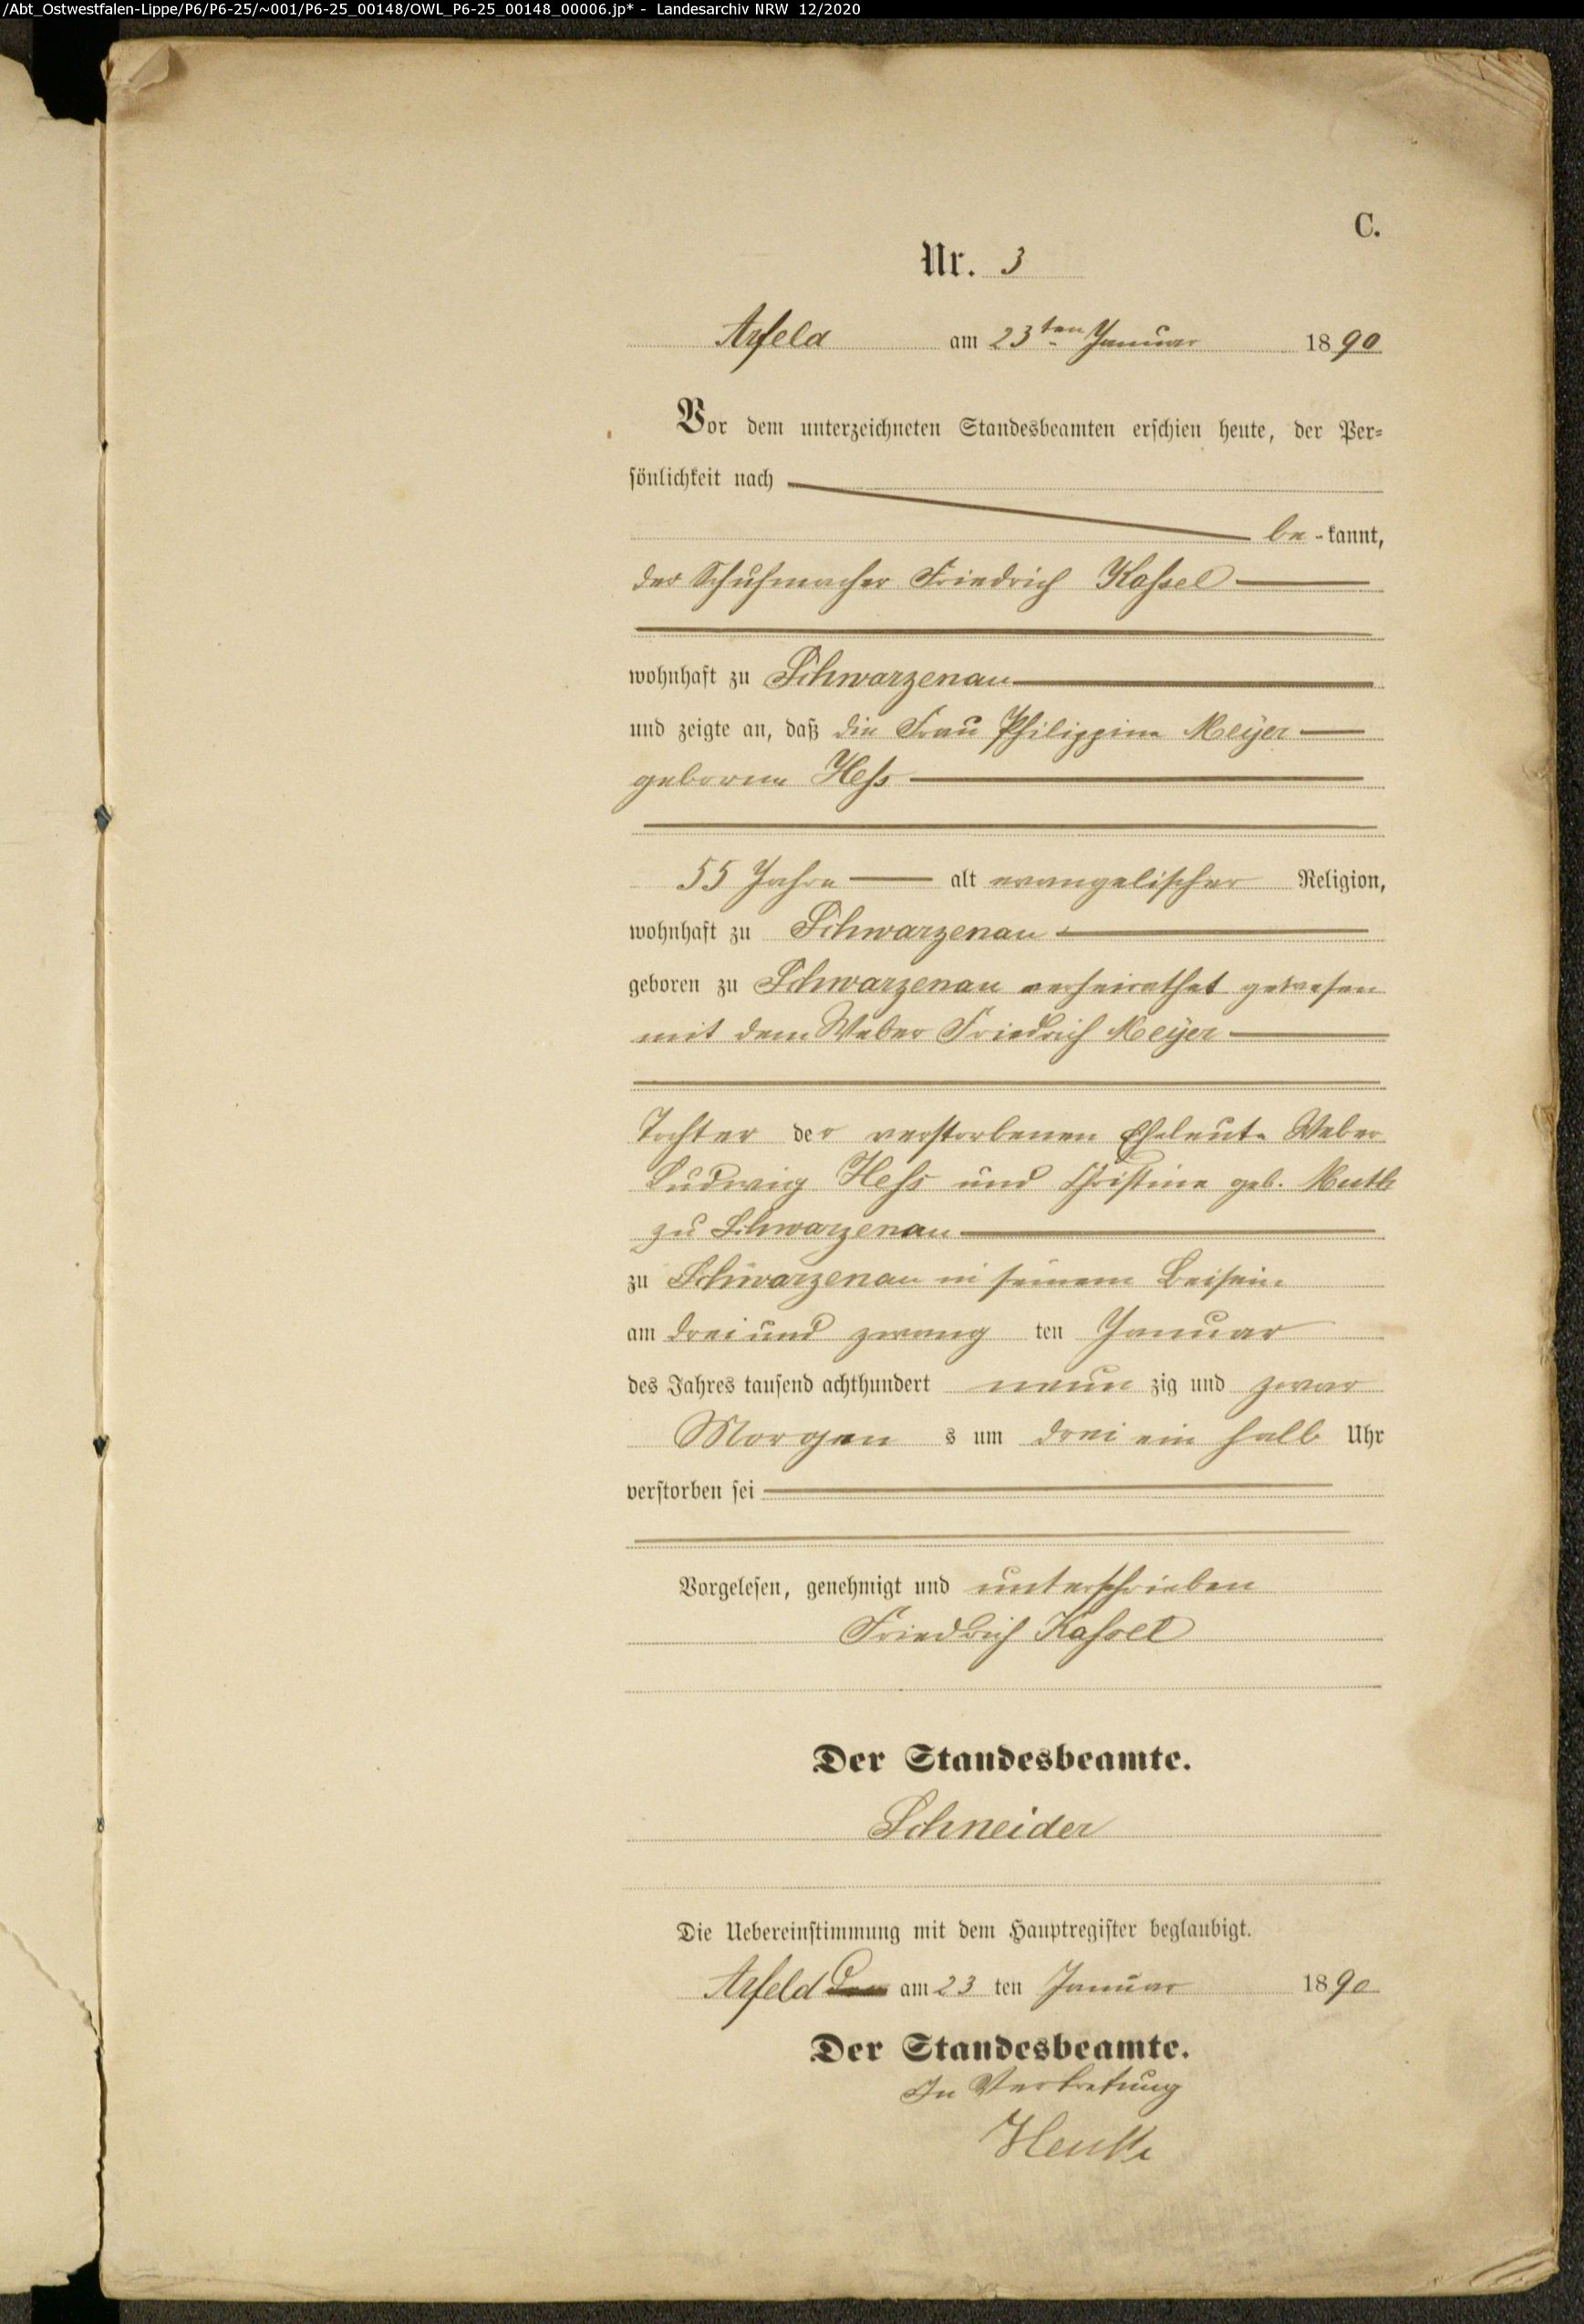 /Abt_Ostwestfalen-Lippe/P6/P6-25/~001/P6-25_00148/OWL_P6-25_00148_00006.jp* - Landesarchiv NRW 12/2020
C.
Nr. 3
Arfeld am 23ten Januar 1890
Vor dem unterzeichneten Standesbeamten erschien heute, der Per-
sönlichkeit nach
be-kannt,
der Schuhmacher Friedrich Kassel
wohnhaft zu Schwarzenau
und zeigte an, daß die Frau Philippine Meyer
geborene Hess
55 Jahre alt evangelischer Religion,
wohnhaft zu Schwarzenau
geboren zu Schwarzenau verheirathet gewesen
mit dem Weber Friedrich Meyer
Tochter der verstorbenen Eheleute Weber
Ludwig Hess und Christine geb. Muth
zu Schwarzenau
zu Schwarzenau in seinem Beisein
am drei und zwanzig ten Januar
des Jahres tausend achthundert neun zig und zwar
Morgen s um drei ein halb Uhr
verstorben sei
Vorgelesen, genehmigt und unterschrieben
Friedrich Kassel
Der Standesbeamte.
Schneider
Die Uebereinstimmung mit dem Hauptregister beglaubigt.
Arfeld am 23 ten Januar 1890
Der Standesbeamte.
In Vertretung